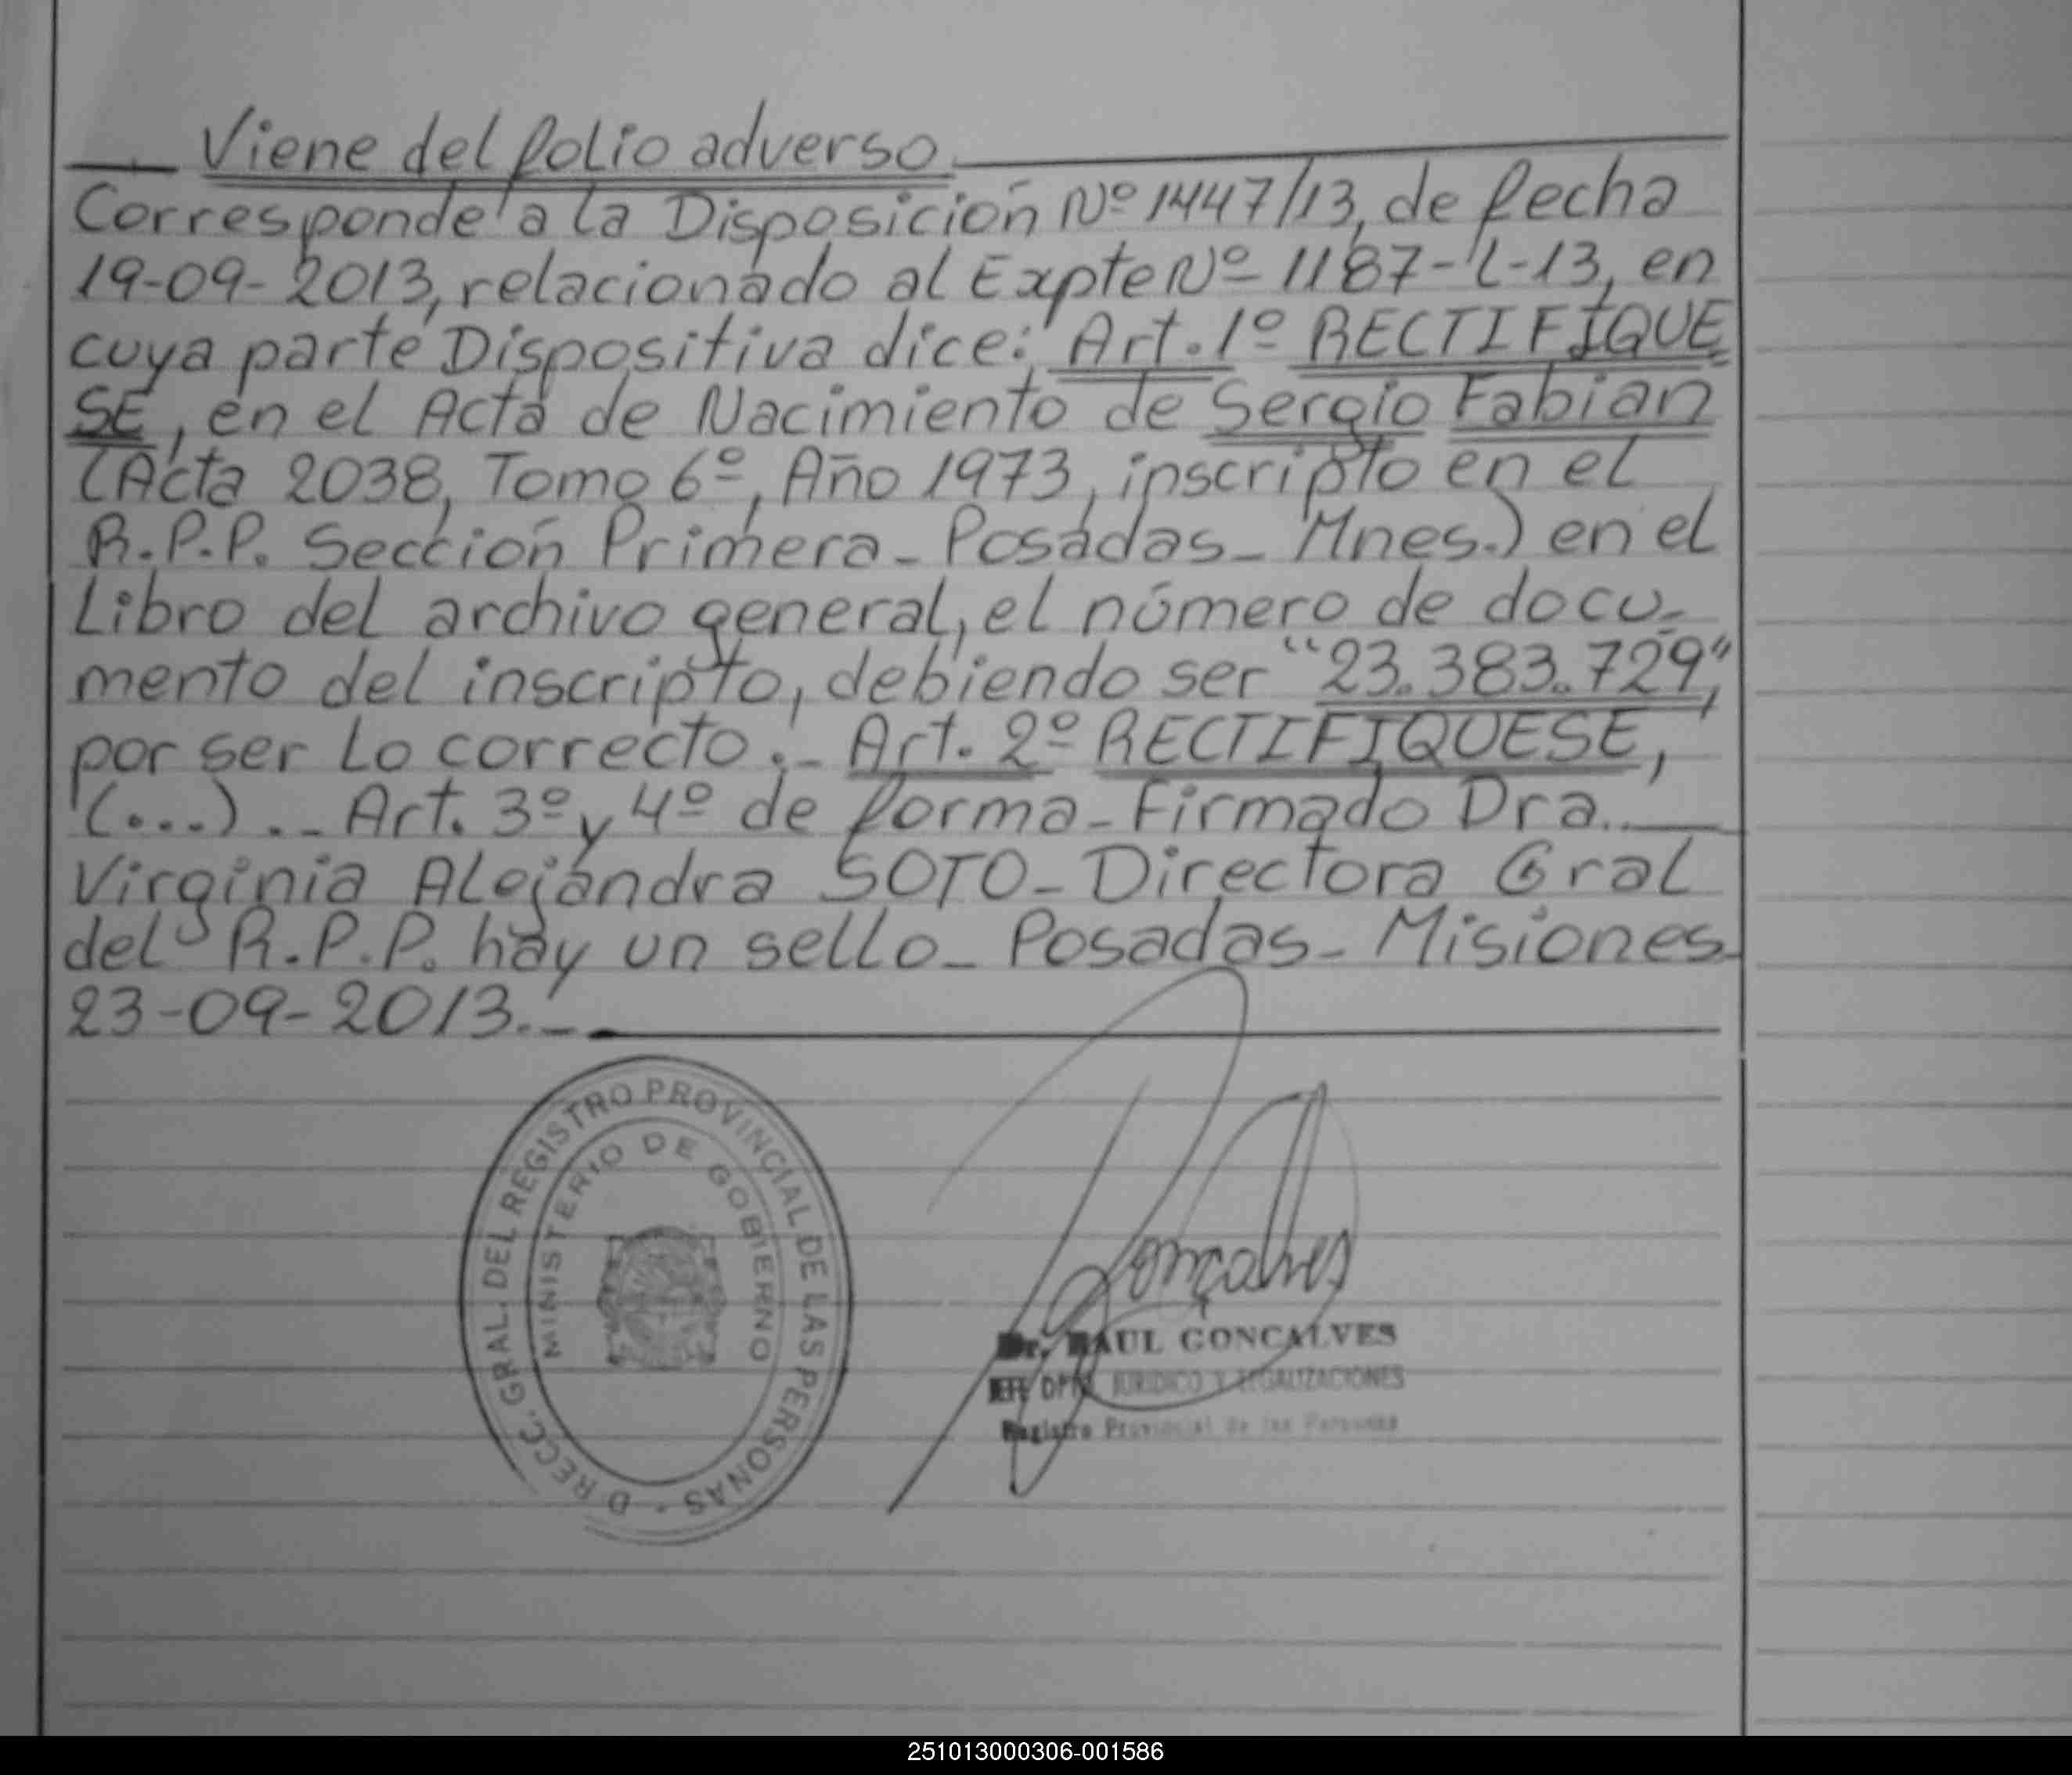 Viene del folio adverso
Corresponde a la Disposición Nº 1447/13, de fecha
19-09-2013, relacionado al Expte Nº 1187-L-13, en
cuya parte Dispositiva dice: Art. 1º RECTIFIQUE
SE, en el Acta de Nacimiento de Sergio Fabian
(Acta 2038, Tomo 6º, Año 1973, inscripto en el
R.P.P. Sección Primera - Posadas - Mnes.) en el
Libro del archivo general, el número de docu-
mento del inscripto, debiendo ser "23.383.729",
por ser lo correcto.- Art. 2º RECTIFIQUESE,
(...).- Art. 3º y 4º de forma - Firmado Dra.
Virginia Alejandra SOTO - Directora Gral
del R.P.P. hay un sello - Posadas - Misiones
23-09-2013.-
DIRECC. GRAL. DEL REGISTRO PROVINCIAL DE LAS PERSONAS -
MINISTERIO DE GOBIERNO
Gonçalves
Dr. RAUL GONCALVES
JEFE DPTO JURIDICO Y LEGALIZACIONES
Registro Provincial de las Personas
251013000306-001586